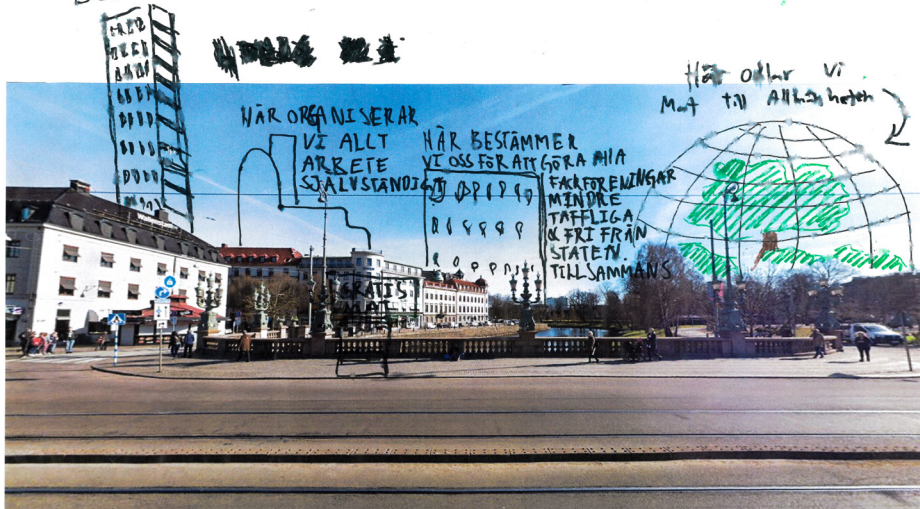 Här odlar vi
Mat till Allmänheten
HÄR ORGANISERAR
VI ALLT
ARBETE
SJÄLVSTÄNDIGT
HÄR BESTÄMMER
VI OSS FÖR ATT GÖRA ALLA
FACKFÖRENINGAR
MINDRE
TAFFLIGA
& FRI FRÅN
STATEN.
TILLSAMMANS
GRATIS